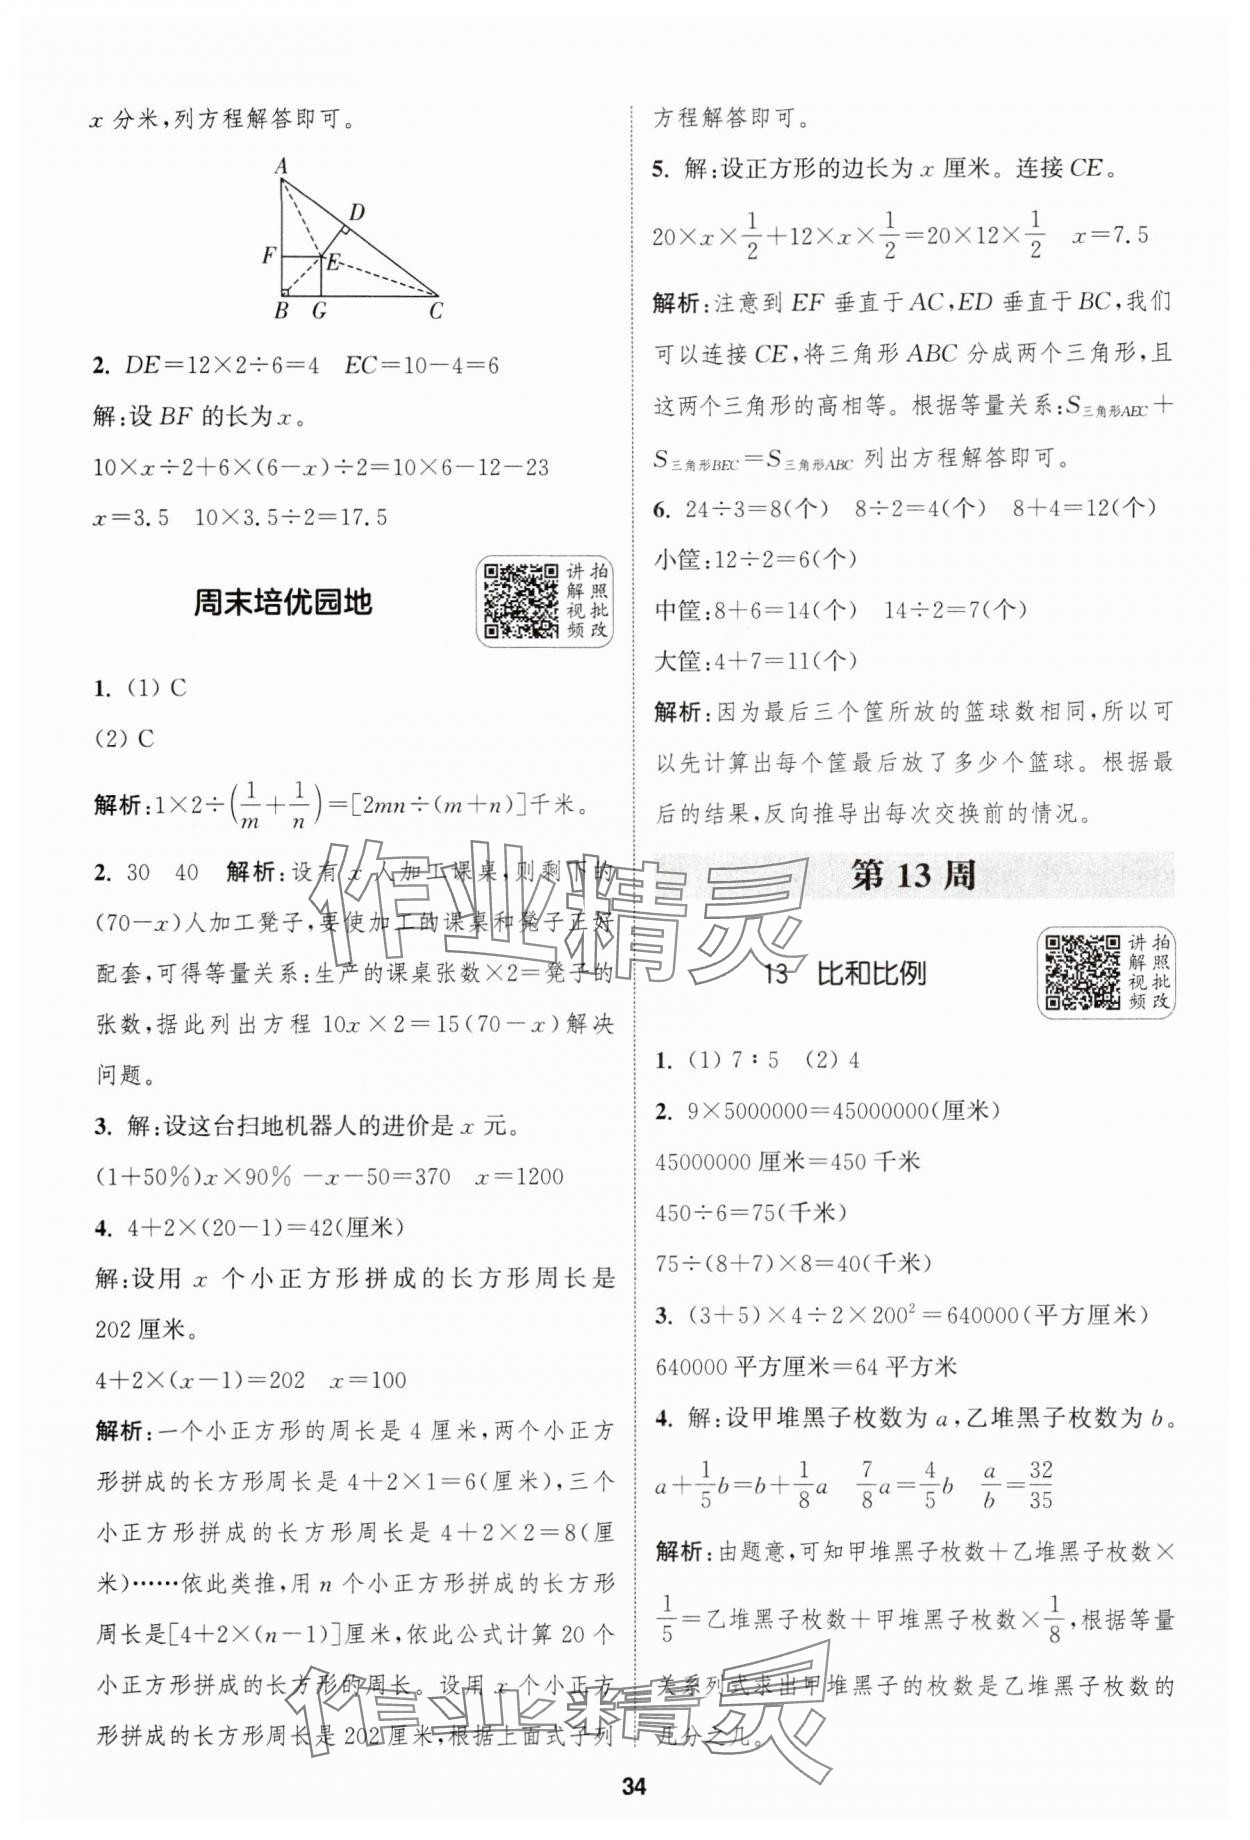 x 分米,列方程解答即可。
A
D
F
E
B G C
2. DE=12×2÷6=4 EC=10-4=6
解:设 BF 的长为 x。
10×x÷2+6×(6-x)÷2=10×6-12-23
x=3.5 10×3.5÷2=17.5
周末培优园地
讲解视频 拍照批改
1. (1) C
(2) C
解析:1×2÷(1/m+1/n)=[2mn÷(m+n)]千米。
2. 30 40 解析:设有 x 人加工课桌,则剩下的
(70-x)人加工凳子,要使加工的课桌和凳子正好
配套,可得等量关系:生产的课桌张数×2=凳子的
张数,据此列出方程 10x×2=15(70-x)解决
问题。
3. 解:设这台扫地机器人的进价是 x 元。
(1+50%)x×90%-x-50=370 x=1200
4. 4+2×(20-1)=42(厘米)
解:设用 x 个小正方形拼成的长方形周长是
202 厘米。
4+2×(x-1)=202 x=100
解析:一个小正方形的周长是 4 厘米,两个小正方
形拼成的长方形周长是 4+2×1=6(厘米),三个
小正方形拼成的长方形周长是 4+2×2=8(厘
米)……依此类推,用 n 个小正方形拼成的长方形
周长是[4+2×(n-1)]厘米,依此公式计算 20 个
小正方形拼成的长方形的周长。设用 x 个小正方
形拼成的长方形周长是 202 厘米,根据上面式子列
方程解答即可。
5. 解:设正方形的边长为 x 厘米。连接 CE。
20×x×1/2+12×x×1/2=20×12×1/2 x=7.5
解析:注意到 EF 垂直于 AC,ED 垂直于 BC,我们
可以连接 CE,将三角形 ABC 分成两个三角形,且
这两个三角形的高相等。根据等量关系:S三角形AEC+
S三角形BEC=S三角形ABC 列出方程解答即可。
6. 24÷3=8(个) 8÷2=4(个) 8+4=12(个)
小筐:12÷2=6(个)
中筐:8+6=14(个) 14÷2=7(个)
大筐:4+7=11(个)
解析:因为最后三个筐所放的篮球数相同,所以可
以先计算出每个筐最后放了多少个篮球。根据最
后的结果,反向推导出每次交换前的情况。
第 13 周
13 比和比例
讲解视频 拍照批改
1. (1) 7∶5 (2) 4
2. 9×5000000=45000000(厘米)
45000000 厘米=450 千米
450÷6=75(千米)
75÷(8+7)×8=40(千米)
3. (3+5)×4÷2×200²=640000(平方厘米)
640000 平方厘米=64 平方米
4. 解:设甲堆黑子枚数为 a,乙堆黑子枚数为 b。
a+1/5b=b+1/8a 7/8a=4/5b a/b=32/35
解析:由题意,可知甲堆黑子枚数+乙堆黑子枚数×
1/5=乙堆黑子枚数+甲堆黑子枚数×1/8,根据等量
关系列式求出甲堆黑子的枚数是乙堆黑子枚数的
几分之几。
34
作业精灵
作业精灵